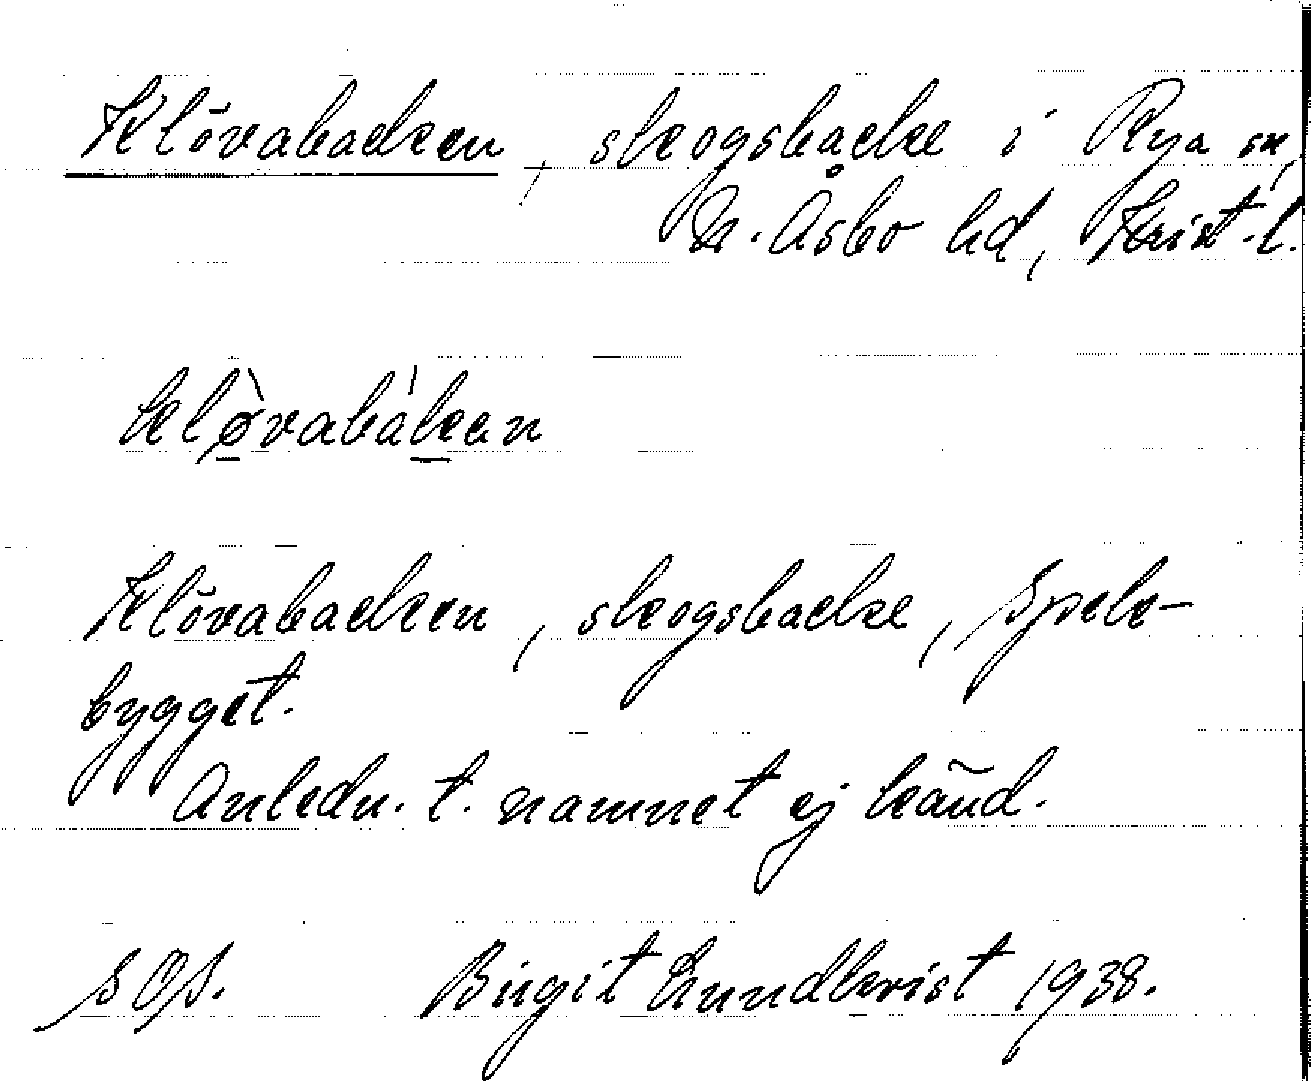 Klövabacken, skogsbacke i Rya sn,
N. Åsbo hd, Krist. l.
klø̀vabákan
Klövabacken, skogsbacke, Spele-
bygget.
Anledn. t. namnet ej känd.
SOS. Birgit Lundkvist 1938.